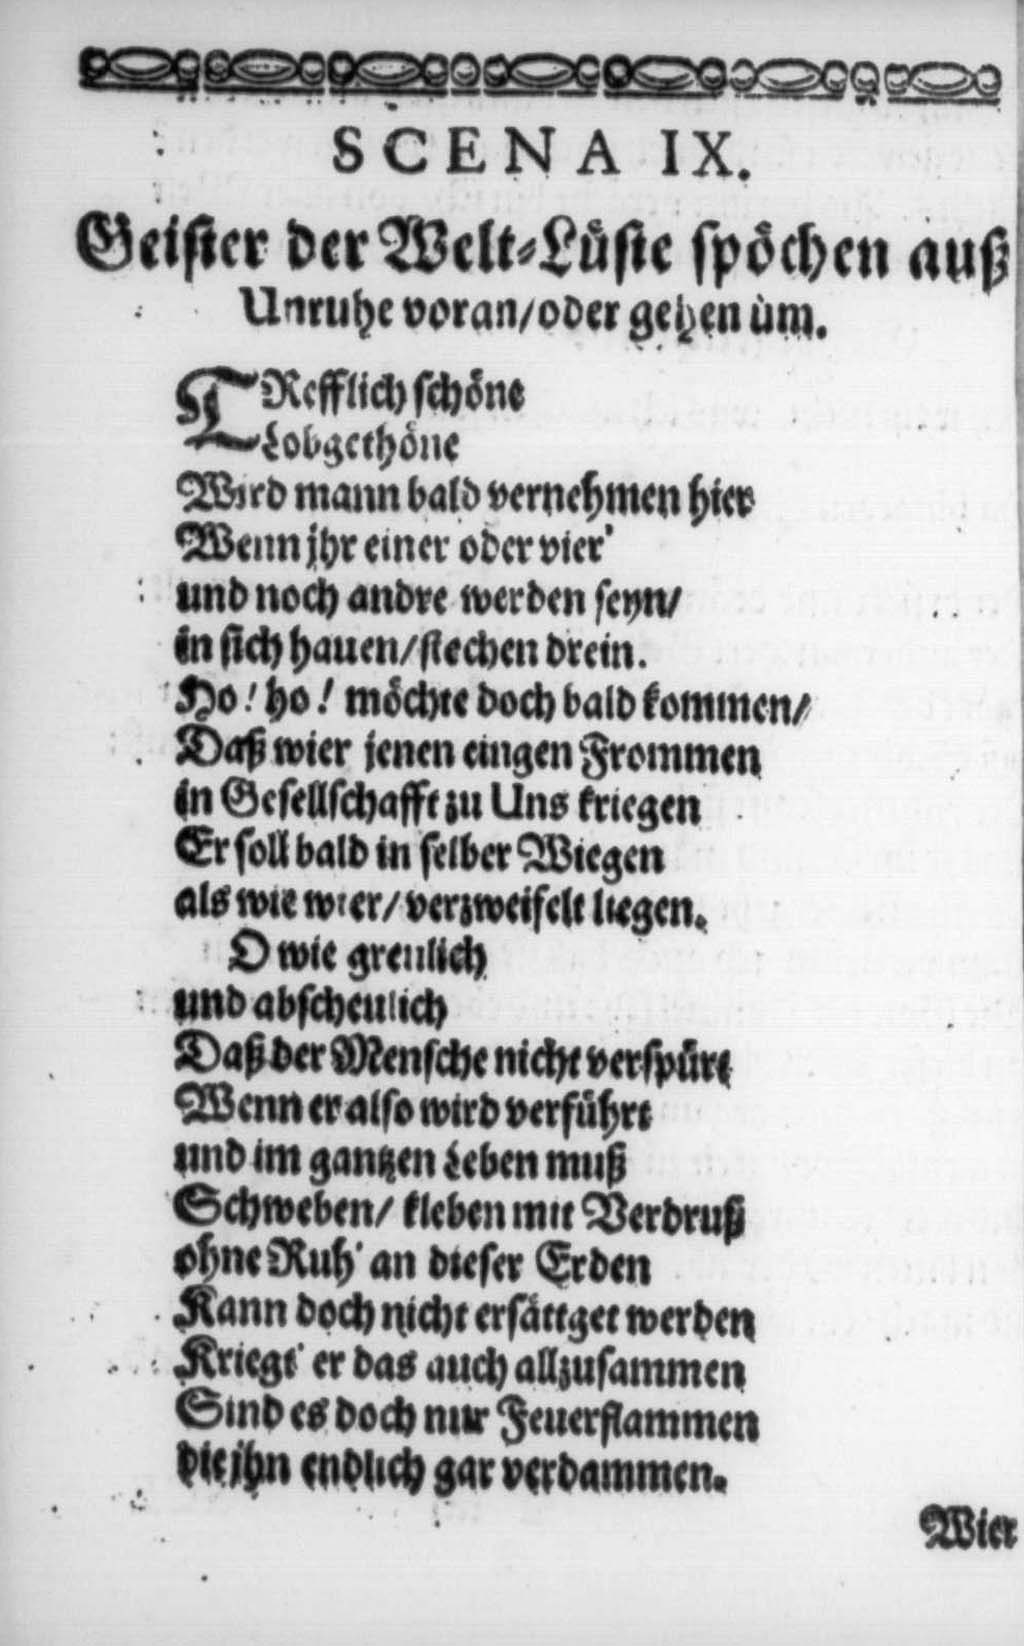 SCENA IX.
Geister der Welt-Lüste spöchen auß
Unruhe voran/oder gehen ùm.
TRefflich schöne
Lobgethöne
Wird mann bald vernehmen hier
Wenn jhr einer oder vier'
und noch andre werden seyn/
in sich hauen/stechen drein.
Ho! ho! möchte doch bald kommen/
Daß wier jenen eingen Frommen
in Gesellschafft zu Uns kriegen
Er soll bald in selber Wiegen
als wie wier/verzweifelt liegen.
O wie greulich
und abscheulich
Daß der Mensche nicht verspürt
Wenn er also wird verführt
und im gantzen Leben muß
Schweben/ kleben mit Verdruß
ohne Ruh' an dieser Erden
Kann doch nicht ersättget werden
Kriegt' er das auch allzusammen
Sind es doch nur Feuerflammen
die jhn endlich gar verdammen.
Wier